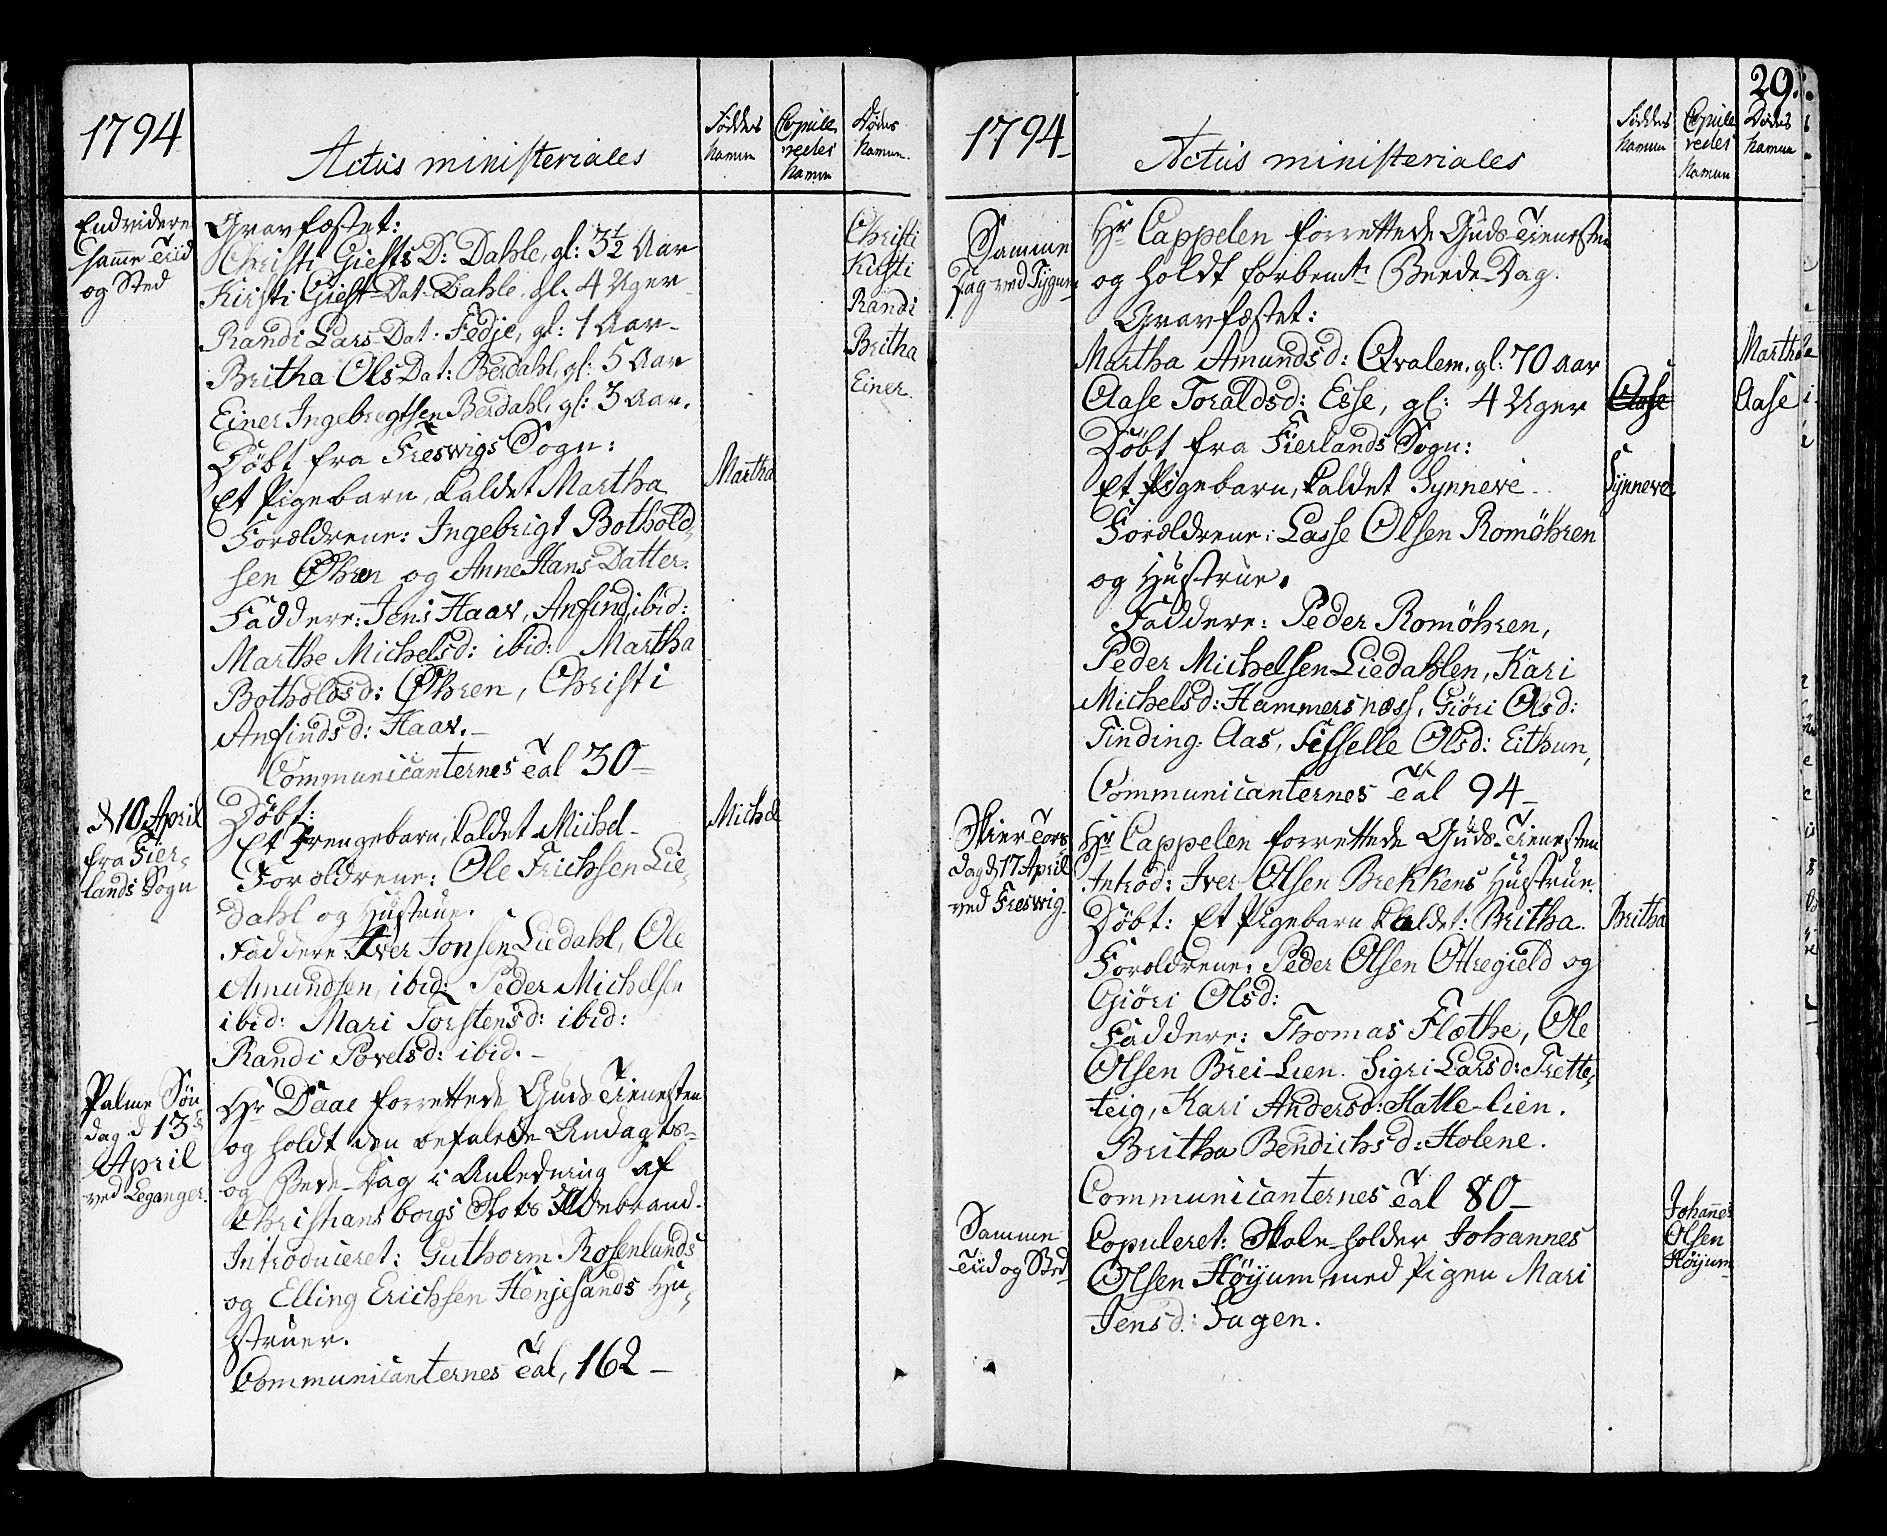 1794
Actus ministeriales
Føddes Navne
Copuleredes Navne
Dødes Navne
Endvidere
samme Tiid
og Sted
Gravfæstet:
Christi Giests D: Dahle, gl: 3½ Aar
Kirsti Giest-Dat. Dahle, gl. 4 Uger
Randi Lars-Dat: Fedje, gl: 1 Aar
Britha Ols Dat: Berdahl, gl: 5 Aar
Einer Ingebregtsen Berdahl, gl: 3 Aar.
Christi
Kirsti
Randi
Britha
Einer.
Døbt fra Freswigs Sogn:
Et Pigebarn, kaldet Martha
Martha
Forældrene: Ingebrigt Bothold-
sen Øhren og Anne Hans Datter.
Faddere: Jens Haav, Anfind, ibid:
Marthe Michelsd: ibid: Martha
Botholdsd: Øhren, Christi
Anfindsd: Haav.
Communicanternes Tal 30
d 10 April
fra Fier-
lands Sogn
Døbt:
Et Drengebarn, kaldet Michel
Michel
Forældrene: Ole Erichsen Lie-
dahl og Hustrue.
Faddere: Iver Jonsen Liedahl, Ole
Amundsen, ibid: Peder Michelsen
ibid: Mari Torstensd: ibid:
Randi Povelsd: ibid.
Palme Søn
dag d 13de
April
ved Leganger.
Hr Daae forrettede Guds Tienesten
og holdt den befalede Andagts-
og Bede-Dag i Anledning af
Christiansborgs Slots Ildebrand.
Introduceret: Guthorm Rosenlunds
og Elling Erichsen Henjesands Hu-
struer.
Communicanternes Tal, 162
29.
1794
Actus ministeriales
Føddes Navne
Copuleredes Navne
Dødes Navne
Samme
Dag ved Tygum
Hr Cappelen forrettede Guds-Tienesten
og holdt forbemte Beede Dag.
Gravfæstet:
Martha Amundsd: Qvalem, gl: 70 aar
Martha
Aase Toraldsd: Esse, gl: 4 Uger
Aase
Aase
Døbt fra Fierlands Sogn:
Et Pigebarn, kaldet Synneve
Synneve
Forældrene: Lasse Olsen Romøhren
og Hustrue.
Faddere: Peder Romøhren,
Peder Michelsen Liedahlen, Kari
Michelsd: Hammersnæss, Giøri Olsd:
Finding: Aas, Sisselle Olsd: Eithun,
Communicanternes Tal 94
Skier Tors
dag d 17 April
ved Freswig
Hr Cappelen forrettede Guds-Tienesten
Introd: Iver Olsen Brekkens Hustrue.
Døbt: Et Pigebarn kaldet: Britha.
Britha
Forældrene: Peder Olsen Ottregield og
Giøri Olsd:
Faddere: Thomas Flæthe, Ole
Olsen Brei-Lien. Sigri Larsd: Trette-
teig, Kari Andersd: Hatle-lien.
Britha Bendichsd: Holene.
Communicanternes Tal 80
Samme
Tiid og Sted
Copuleret: Skole-holder Johannes
Olsen Høyum med Pigen Mari
Jensd: Fagen.
Johannes
Olsen
Høyum